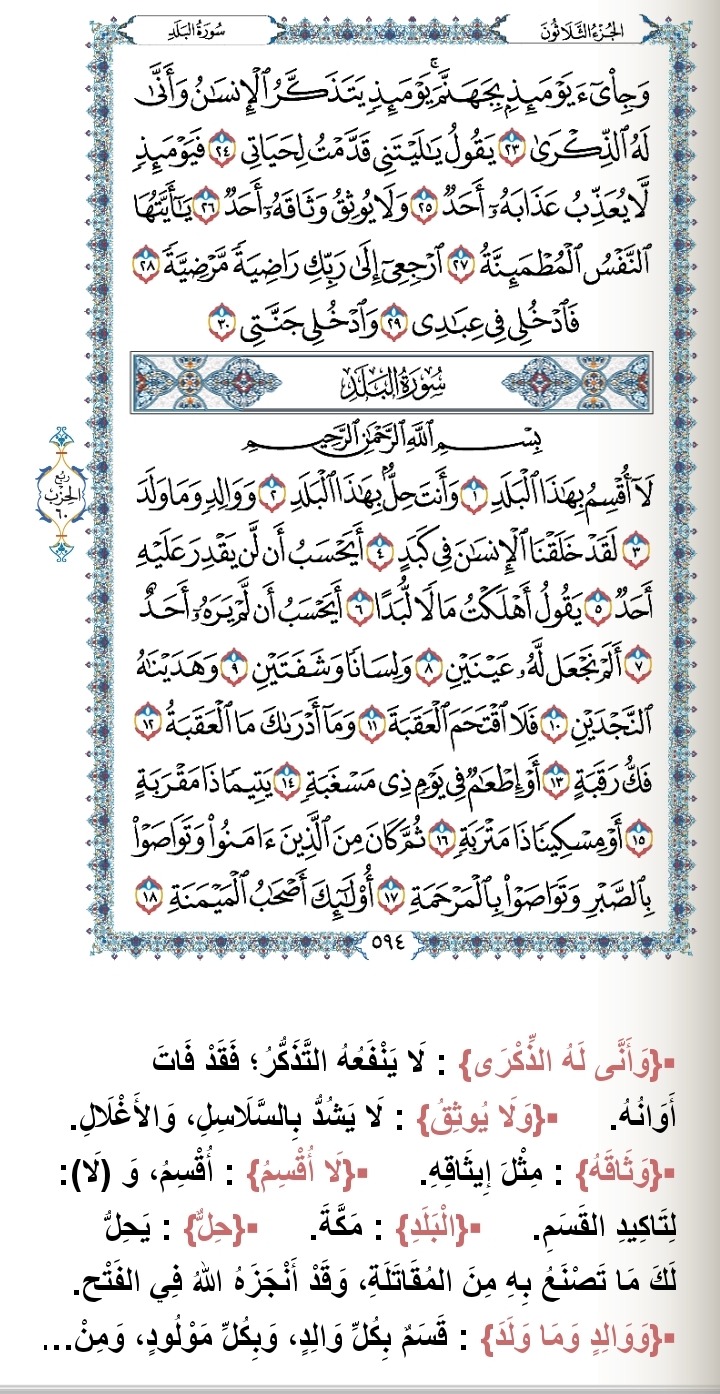 الجُزْءُ الثَّلَاثُونَ
سُورَةُ البَلَدِ
وَجِاْىٓءَ يَوْمَئِذِۭ بِجَهَنَّمَۚ يَوْمَئِذٍ يَتَذَكَّرُ ٱلْإِنسَٰنُ وَأَنَّىٰ
لَهُ ٱلذِّكْرَىٰ ٢٣ يَقُولُ يَٰلَيْتَنِى قَدَّمْتُ لِحَيَاتِى ٢٤ فَيَوْمَئِذٍ
لَّا يُعَذِّبُ عَذَابَهُۥٓ أَحَدٌ ٢٥ وَلَا يُوثِقُ وَثَاقَهُۥٓ أَحَدٌ ٢٦ يَٰٓأَيَّتُهَا
ٱلنَّفْسُ ٱلْمُطْمَئِنَّةُ ٢٧ ٱرْجِعِىٓ إِلَىٰ رَبِّكِ رَاضِيَةً مَّرْضِيَّةً ٢٨
فَٱدْخُلِى فِى عِبَٰدِى ٢٩ وَٱدْخُلِى جَنَّتِى ٣٠
سُورَةُ البَلَدِ
بِسْمِ ٱللَّهِ ٱلرَّحْمَٰنِ ٱلرَّحِيمِ
لَآ أُقْسِمُ بِهَٰذَا ٱلْبَلَدِ ١ وَأَنتَ حِلٌّۢ بِهَٰذَا ٱلْبَلَدِ ٢ وَوَالِدٍ وَمَا وَلَدَ
٣ لَقَدْ خَلَقْنَا ٱلْإِنسَٰنَ فِى كَبَدٍ ٤ أَيَحْسَبُ أَن لَّن يَقْدِرَ عَلَيْهِ
أَحَدٌ ٥ يَقُولُ أَهْلَكْتُ مَالًا لُّبَدًا ٦ أَيَحْسَبُ أَن لَّمْ يَرَهُۥٓ أَحَدٌ
٧ أَلَمْ نَجْعَل لَّهُۥ عَيْنَيْنِ ٨ وَلِسَانًا وَشَفَتَيْنِ ٩ وَهَدَيْنَٰهُ
ٱلنَّجْدَيْنِ ١٠ فَلَا ٱقْتَحَمَ ٱلْعَقَبَةَ ١١ وَمَآ أَدْرَىٰكَ مَا ٱلْعَقَبَةُ ١٢
فَكُّ رَقَبَةٍ ١٣ أَوْ إِطْعَٰمٌ فِى يَوْمٍ ذِى مَسْغَبَةٍ ١٤ يَتِيمًا ذَا مَقْرَبَةٍ
١٥ أَوْ مِسْكِينًا ذَا مَتْرَبَةٍ ١٦ ثُمَّ كَانَ مِنَ ٱلَّذِينَ ءَامَنُوا۟ وَتَوَاصَوْا۟
بِٱلصَّبْرِ وَتَوَاصَوْا۟ بِٱلْمَرْحَمَةِ ١٧ أُو۟لَٰٓئِكَ أَصْحَٰبُ ٱلْمَيْمَنَةِ ١٨
رُبع
الحِزْب
٦٠
٥٩٤
▪{وَأَنَّى لَهُ الذِّكْرَى} : لَا يَنْفَعُهُ التَّذَكُّرُ؛ فَقَدْ فَاتَ
أَوَانُهُ. ▪{وَلَا يُوثِقُ} : لَا يَشُدُّ بِالسَّلَاسِلِ، وَالأَغْلَالِ.
▪{وَثَاقَهُ} : مِثْلَ إِيثَاقِهِ. ▪{لَا أُقْسِمُ} : أُقْسِمُ، وَ (لَا):
لِتَاكِيدِ القَسَمِ. ▪{الْبَلَدِ} : مَكَّةَ. ▪{حِلٌّ} : يَحِلُّ
لَكَ مَا تَصْنَعُ بِهِ مِنَ المُقَاتَلَةِ، وَقَدْ أَنْجَزَهُ اللهُ فِي الفَتْح.
▪{وَوَالِدٍ وَمَا وَلَدَ} : قَسَمٌ بِكُلِّ وَالِدٍ، وَبِكُلِّ مَوْلُودٍ، وَمِنْ...